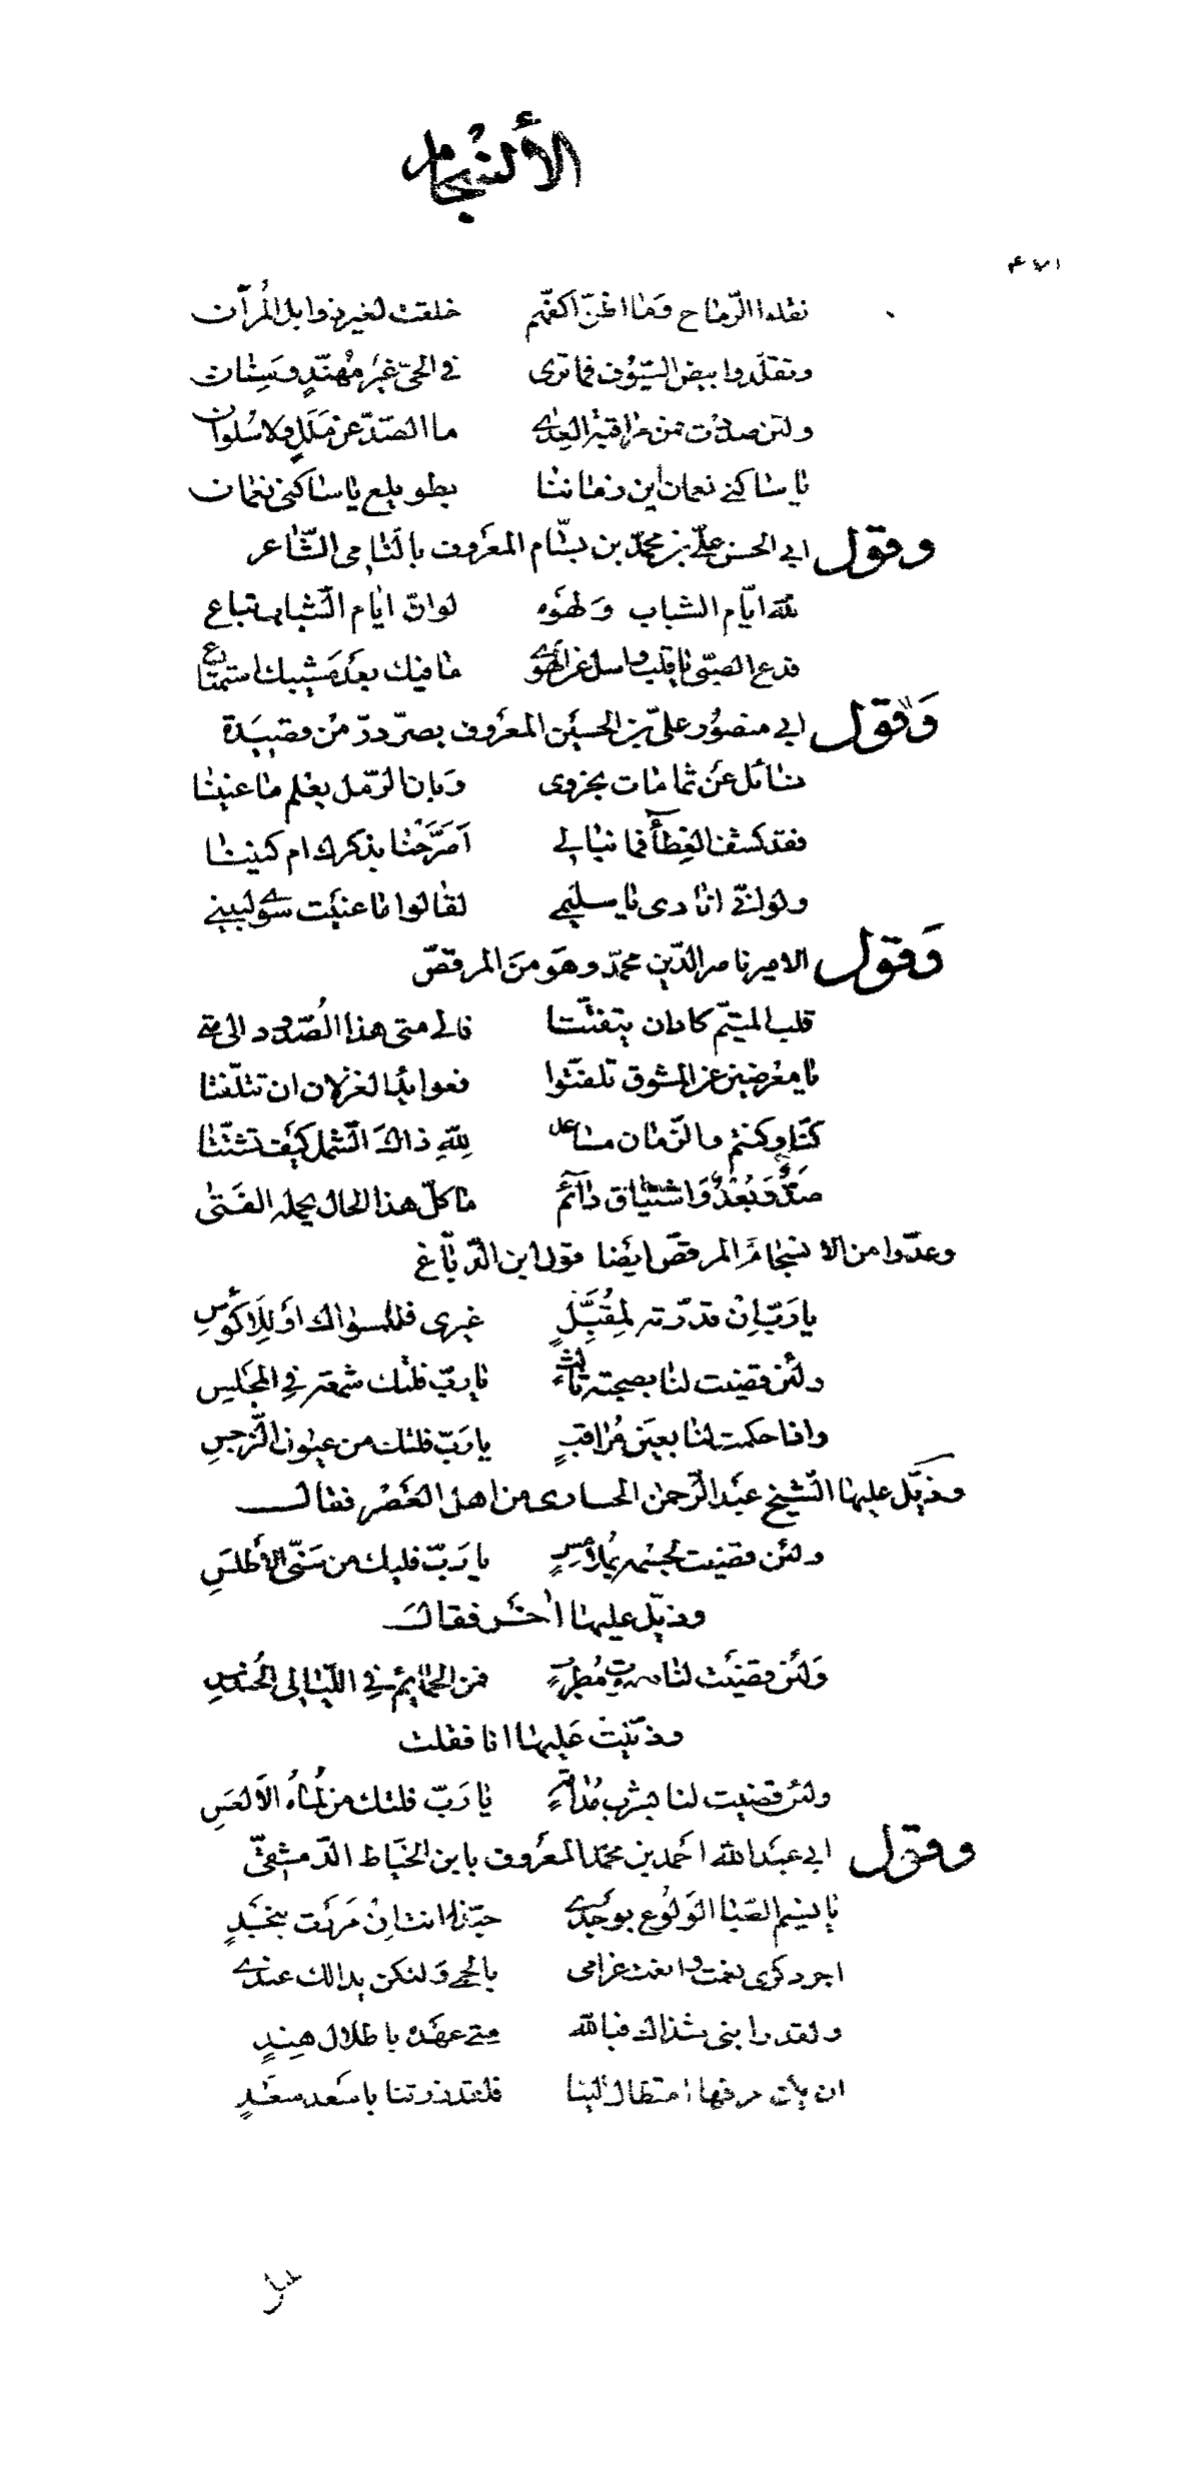 الأنسجام
نقلوا الرّماح وَمَا اظنّ اكفّهم خلقت لغير ذوابل المُرّآن
وتقلّدوا بيض السّيُوف فما ترى في الحيّ غيْر مُهنّدٍ وسِنَان
ولئن صددْت فمن مراقبة العِدٰى ما الصّدّ عن مَلَلٍ ولا سُلوان
يا ساكني نعمان اين زماننا بطويلع يا ساكني نعمان
وقول ابي الحسن عليّ بن محمّد بن بسّام المعرُوف بالسّامي الشّاعر
للّه ايّام الشباب وَلهوَه لوانّ ايام الشباب تباع
فدع الصبى يا قلب واسل عن الهوٰى ما فيك بعدَ مَشيبك استمتاع
وَقول ابي منصُور علىّ بن الحسين المعرُوف بصرّدرّ من قصيَدة
نسائل عَن ثمامات بحزوى وَبان الرّمل يعلم ما عنينا
فقد كشف الغِطآء فما نبالي اَصَرَّحْنا بذكرك ام كنينا
ولو انّي انادى يا سليمى لقالوا ما عنيْت سوٰى لبينى
وَقول الامير ناصر الدّين محمّد وهوَ منَ المرقصّ
قلب المتيّم كاد ان يتفتّتا فالى متى هذا الصُّدود الى متى
يا معْرضين عن المشوق تلفّتوا فعوايد الغزلان ان تتلّفتا
كنّا وكنتم والزّمان مساعد لِلّهِ ذاكَ الشّمل كيْفَ تشتّتا
صَدٌّ وَبُعْدٌ وَاشتيَاق دَآئم ما كلّ هذا الحال يحمله الفَتىٰ
وعدّوا من الانسجام المرقصّ ايضا قول ابن الدّبّاغ
يا ربّ اِنْ قدّرته لمقُبِّلٍ غيرى فللمسواك اَو للَاكَؤسِ
ولئن قضيت لنا بصحبته ثالثٍ يا ربّ فلتك شمعة في المجَلسِ
واذا حكمت لنا بعيَن مُراقبٍ يا رَبّ فلتك من عيون النّرجسِ
وذيّل عليها الشّيخ عبْد الرّحمن الحمادى من اهل العَصْر فقال
ولئن قضيت لجسْمه بمُلامِسٍ يا رَبّ فليك من سَنّى الاَطلَسِ
وذيّل عليها اٰخَر فقال
وَلئن قضيْت لنا بصوت مُطرِبٍ فمن الحمايم في اللّيالى الحُندسِ
وذيّلت عَليها انا فقلت
ولئن قضيت لنا بشرب مُدامَةٍ يا رَبّ فلتك من لُماهُ الاَلعَسِ
وقول ابي عبْد الله احْمد بن محمّد المعرُوف بابن الخيّاط الدّمشقيّ
يا نسيم الصّبا الوَلُوع بوجْدٰى حبّذا انت اِنْ مَررْت بنجْدٍ
اجر ذكرى نعمت وانعت غرامى بالحمى وَلتكن يدا لك عندٰى
ولقد رابنى شذاك فبالله متى عهَده باطلال هِندٍ